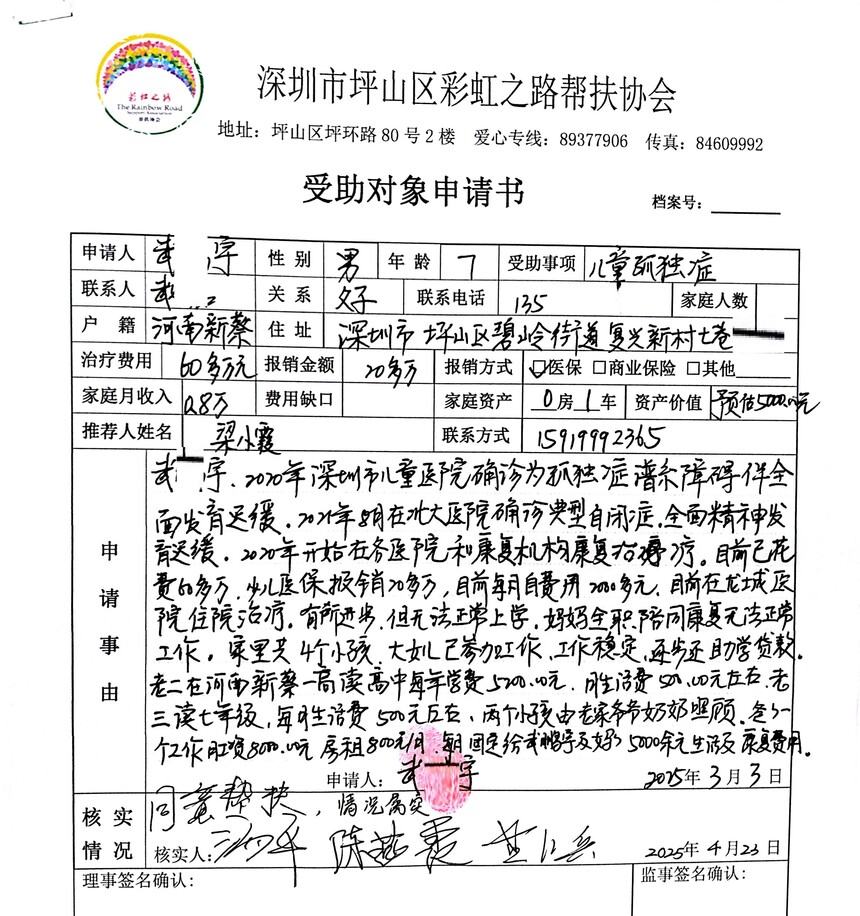 彩虹之路
The Rainbow Road
Support Association
帮扶协会
深圳市坪山区彩虹之路帮扶协会
地址：坪山区坪环路80号2楼 爱心专线：89377906 传真：84609992
受助对象申请书
档案号：
申请人 武 宇 性别 男 年龄 7 受助事项 儿童孤独症
联系人 武 关系 父子 联系电话 135 家庭人数
户籍 河南新蔡 住址 深圳市坪山区碧岭街道复兴新村七巷
治疗费用 60多万元 报销金额 20多万 报销方式 ☑医保 □商业保险 □其他
家庭月收入 0.8万 费用缺口 家庭资产 0房1车 资产价值 预估5000.00元
推荐人姓名 梁小霞 联系方式 15919992365
申请事由
武 宇、2020年深圳市儿童医院确诊为孤独症谱系障碍伴全
面发育迟缓。2021年8月在北大医院确诊典型自闭症、全面精神发
育迟缓。2020年开始在各医院和康复机构康复治疗。目前已花
费60多万，少儿医保报销20多万，目前每月自费用2000多元，目前在龙城医
院住院治疗。有所进步，但无法正常上学。妈妈全职陪同康复无法正常
工作。家里共4个小孩、大女儿已参加工作、工作稳定、逐步还助学贷款。
老二在河南新蔡一高读高中每年学费5200.00元．月生活费500.00元左右．老
三读七年级，每月生活费500元左右、两个小孩由老家爷爷奶奶照顾。爸爸一
个工作月工资8000.00元 房租800元/月．每月固定给武 宇及妈妈5000余元生活及康复费用。
申请人：武 宇 2025年3月3日
核实情况
同意帮扶，情况属实
核实人： 陈 霞 2025年4月23日
理事签名确认： 监事签名确认：